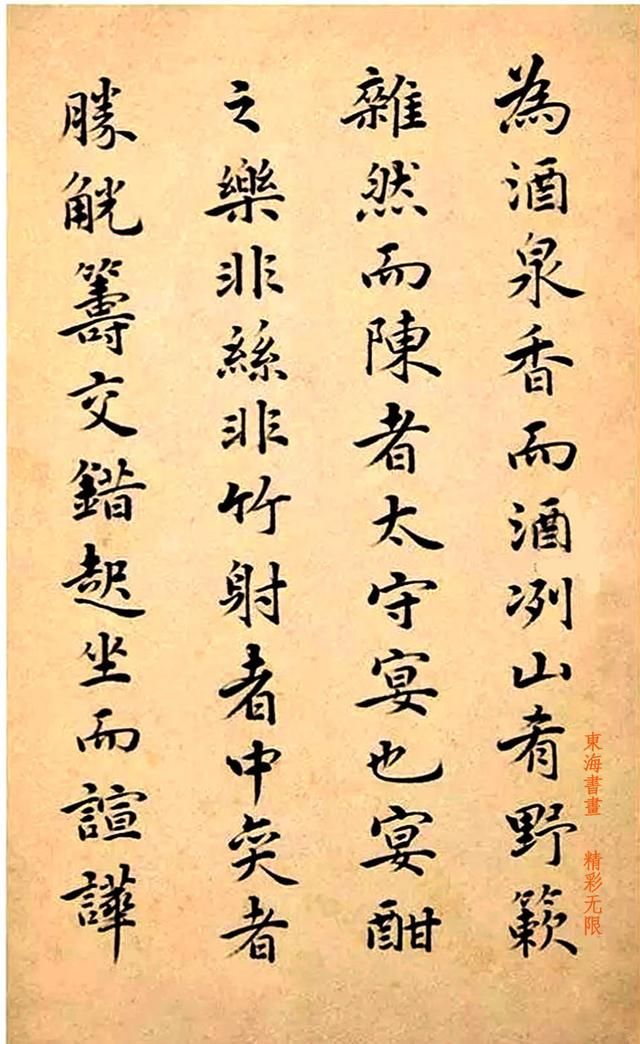 為酒泉香而酒冽山肴野簌
雜然而陳者太守宴也宴酣
之樂非絲非竹射者中奕者
勝觥籌交錯起坐而諠譁
東海書畫 精彩无限